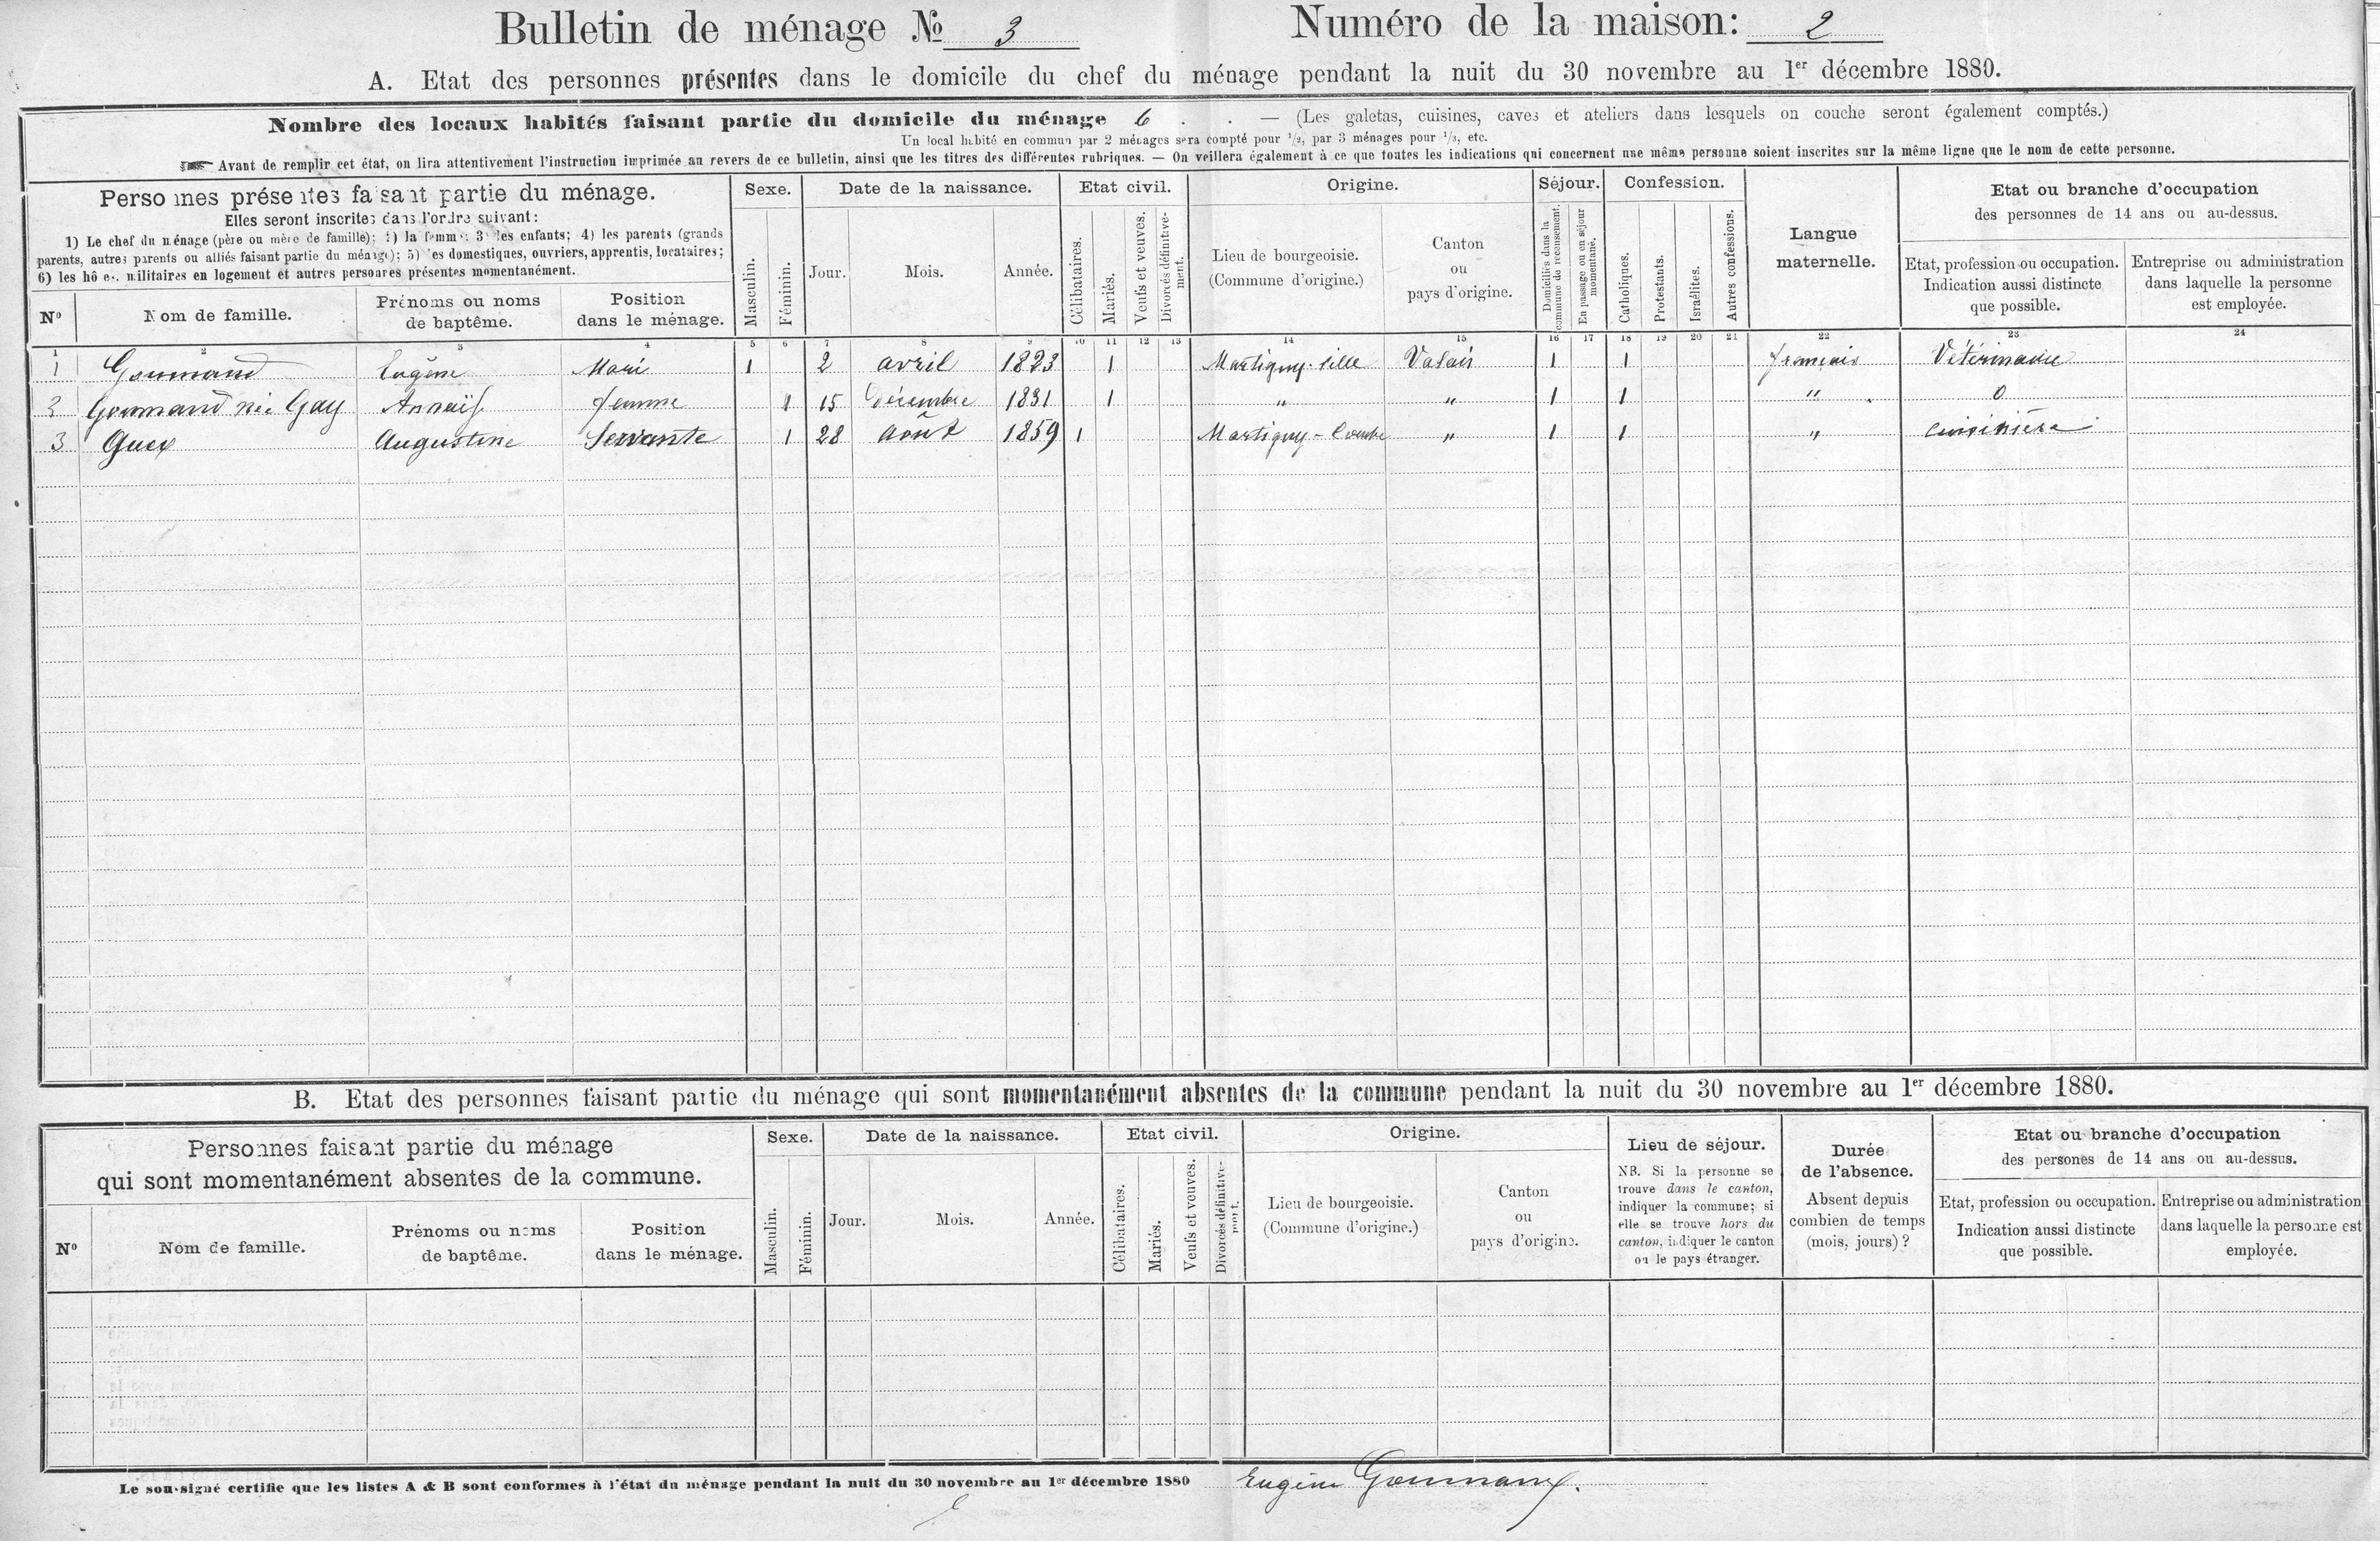 Bulletin de ménage № 3 Numéro de la maison: 2
A. Etat des personnes présentes dans le domicile du chef du ménage pendant la nuit du 30 novembre au 1er décembre 1880.
Nombre des locaux habités faisant partie du domicile du ménage 6 . . — (Les galetas, cuisines, caves et ateliers dans lesquels on couche seront également comptés.)
Un local habité en commun par 2 ménages sera compté pour 1/2, par 3 ménages pour 1/3, etc.
Avant de remplir cet état, on lira attentivement l'instruction imprimée au revers de ce bulletin, ainsi que les titres des différentes rubriques. — On veillera également à ce que toutes les indications qui concernent une même personne soient inscrites sur la même ligne que le nom de cette personne.
Personnes présentes faisant partie du ménage.
Elles seront inscrites dans l'ordre suivant:
1) Le chef du ménage (père ou mère de famille); 2) la femme; 3) les enfants; 4) les parents (grands
parents, autres parents ou alliés faisant partie du ménage); 5) les domestiques, ouvriers, apprentis, locataires;
6) les hôtes, militaires en logement et autres personnes présentes momentanément.
Nº
Nom de famille.
Prénoms ou noms
de baptême.
Position
dans le ménage.
Sexe.
Masculin.
Féminin.
Date de la naissance.
Jour.
Mois.
Année.
Etat civil.
Célibataires.
Mariés.
Veufs et veuves.
Divorcés définitive-
ment.
Origine.
Lieu de bourgeoisie.
(Commune d'origine.)
Canton
ou
pays d'origine.
Séjour.
Domiciliés dans la
commune de recensement.
En passage ou en séjour
momentané.
Confession.
Catholiques.
Protestants.
Israélites.
Autres confessions.
Langue
maternelle.
Etat ou branche d'occupation
des personnes de 14 ans ou au-dessus.
Etat, profession ou occupation.
Indication aussi distincte
que possible.
Entreprise ou administration
dans laquelle la personne
est employée.
1 2 3 4 5 6 7 8 9 10 11 12 13 14 15 16 17 18 19 20 21 22 23 24
1 Goumand Eugène Mari 1 2 avril 1823 1 Martigny-Ville Valais 1 1 français Vétérinaire
2 Goumand née Gay Annaïs femme 1 15 Décembre 1831 1 " " 1 1 " 0
3 Guex Augustine Servante 1 28 Août 1859 1 Martigny-Combe " 1 1 " cuisinière
B. Etat des personnes faisant partie du ménage qui sont momentanément absentes de la commune pendant la nuit du 30 novembre au 1er décembre 1880.
Personnes faisant partie du ménage
qui sont momentanément absentes de la commune.
Nº
Nom de famille.
Prénoms ou noms
de baptême.
Position
dans le ménage.
Sexe.
Masculin.
Féminin.
Date de la naissance.
Jour.
Mois.
Année.
Etat civil.
Célibataires.
Mariés.
Veufs et veuves.
Divorcés définitive-
ment.
Origine.
Lieu de bourgeoisie.
(Commune d'origine.)
Canton
ou
pays d'origine.
Lieu de séjour.
NB. Si la personne se
trouve dans le canton,
indiquer la commune; si
elle se trouve hors du
canton, indiquer le canton
ou le pays étranger.
Durée
de l'absence.
Absent depuis
combien de temps
(mois, jours)?
Etat ou branche d'occupation
des persones de 14 ans ou au-dessus.
Etat, profession ou occupation.
Indication aussi distincte
que possible.
Entreprise ou administration
dans laquelle la personne est
employée.
Le soussigné certifie que les listes A & B sont conformes à l'état du ménage pendant la nuit du 30 novembre au 1er décembre 1880 Eugène Goumand.